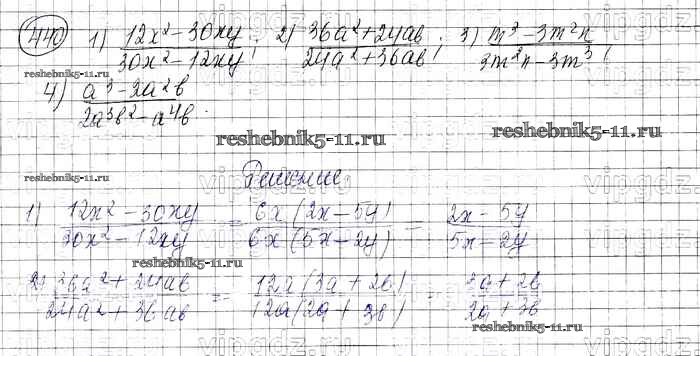 440 1) (12x² - 30xy)/(30x² - 12xy); 2) (36a² + 24ab)/(24a² + 36ab); 3) (m³ - 3m²n)/(3m²n - 3m³);
reshebnik5-11.ru
4) (a³ - 2a²b)/(2a³b² - a⁴b).
reshebnik5-11.ru
reshebnik5-11.ru
reshebnik5-11.ru
Решение
1) (12x² - 30xy)/(30x² - 12xy) = (6x(2x - 5y))/(6x(5x - 2y)) = (2x - 5y)/(5x - 2y)
reshebnik5-11.ru
2) (36a² + 24ab)/(24a² + 36ab) = (12a(3a + 2b))/(12a(2a + 3b)) = (3a + 2b)/(2a + 3b)
reshebnik5-11.ru
vipgdz.com